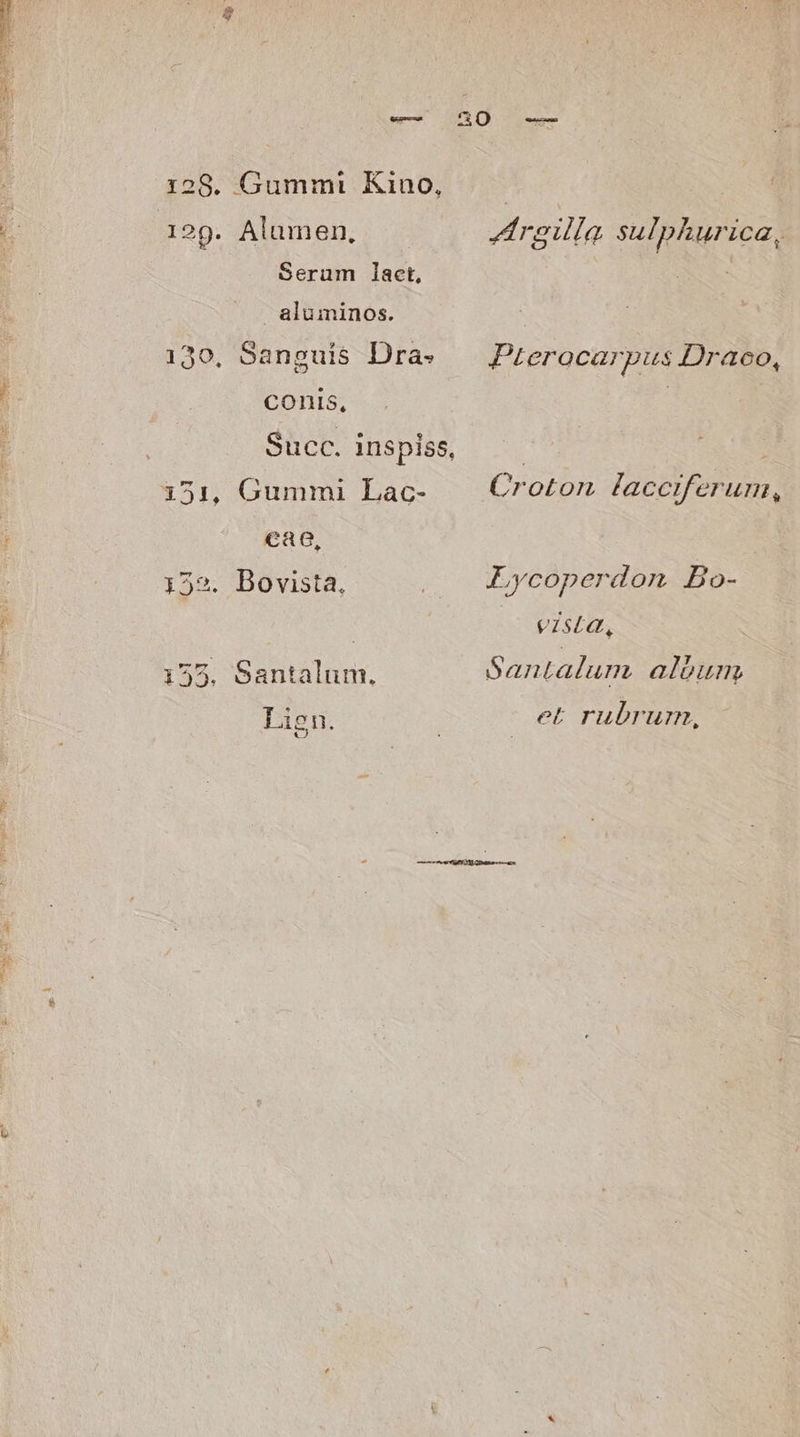 — 20 —
128. Gummi Kino,
129. Alumen, Argilla sulphurica,
Serum lact,
aluminos.
130, Sanguis Dra- Pterocarpus Draco,
conis,
Succ. inspiss,
131, Gummi Lac- Croton lacciferum,
cae,
132. Bovista, Lycoperdon Bo-
vista,
133, Santalum, Santalum album
Lign. et rubrum,